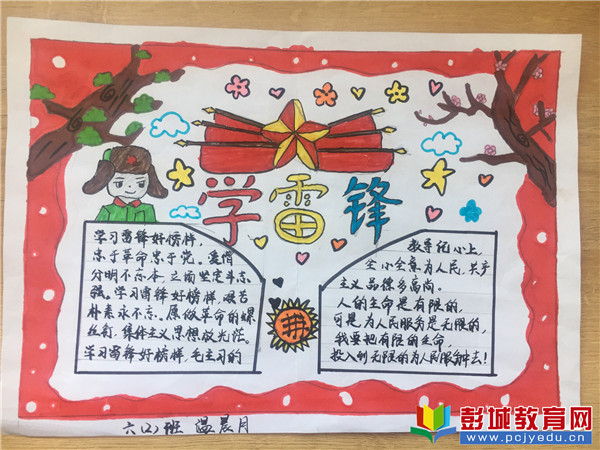 学雷锋
学习雷锋好榜样,
忠于革命忠于党。爱憎
分明不忘本,立场坚定斗志
强。学习雷锋好榜样,艰苦
朴素永不忘。愿做革命的螺
丝钉,集体主义思想放光芒。
学习雷锋好榜样毛主习的
教导记心上,
全心全意为人民,共产
主义品德多高尚。
人的生命是有限的,
可是为人民服务是无限的,
我要把有限的生命,
投入到无限的为人民服务去!
六(2)班 温晨月
彭城教育网
www.pcjyedu.cn